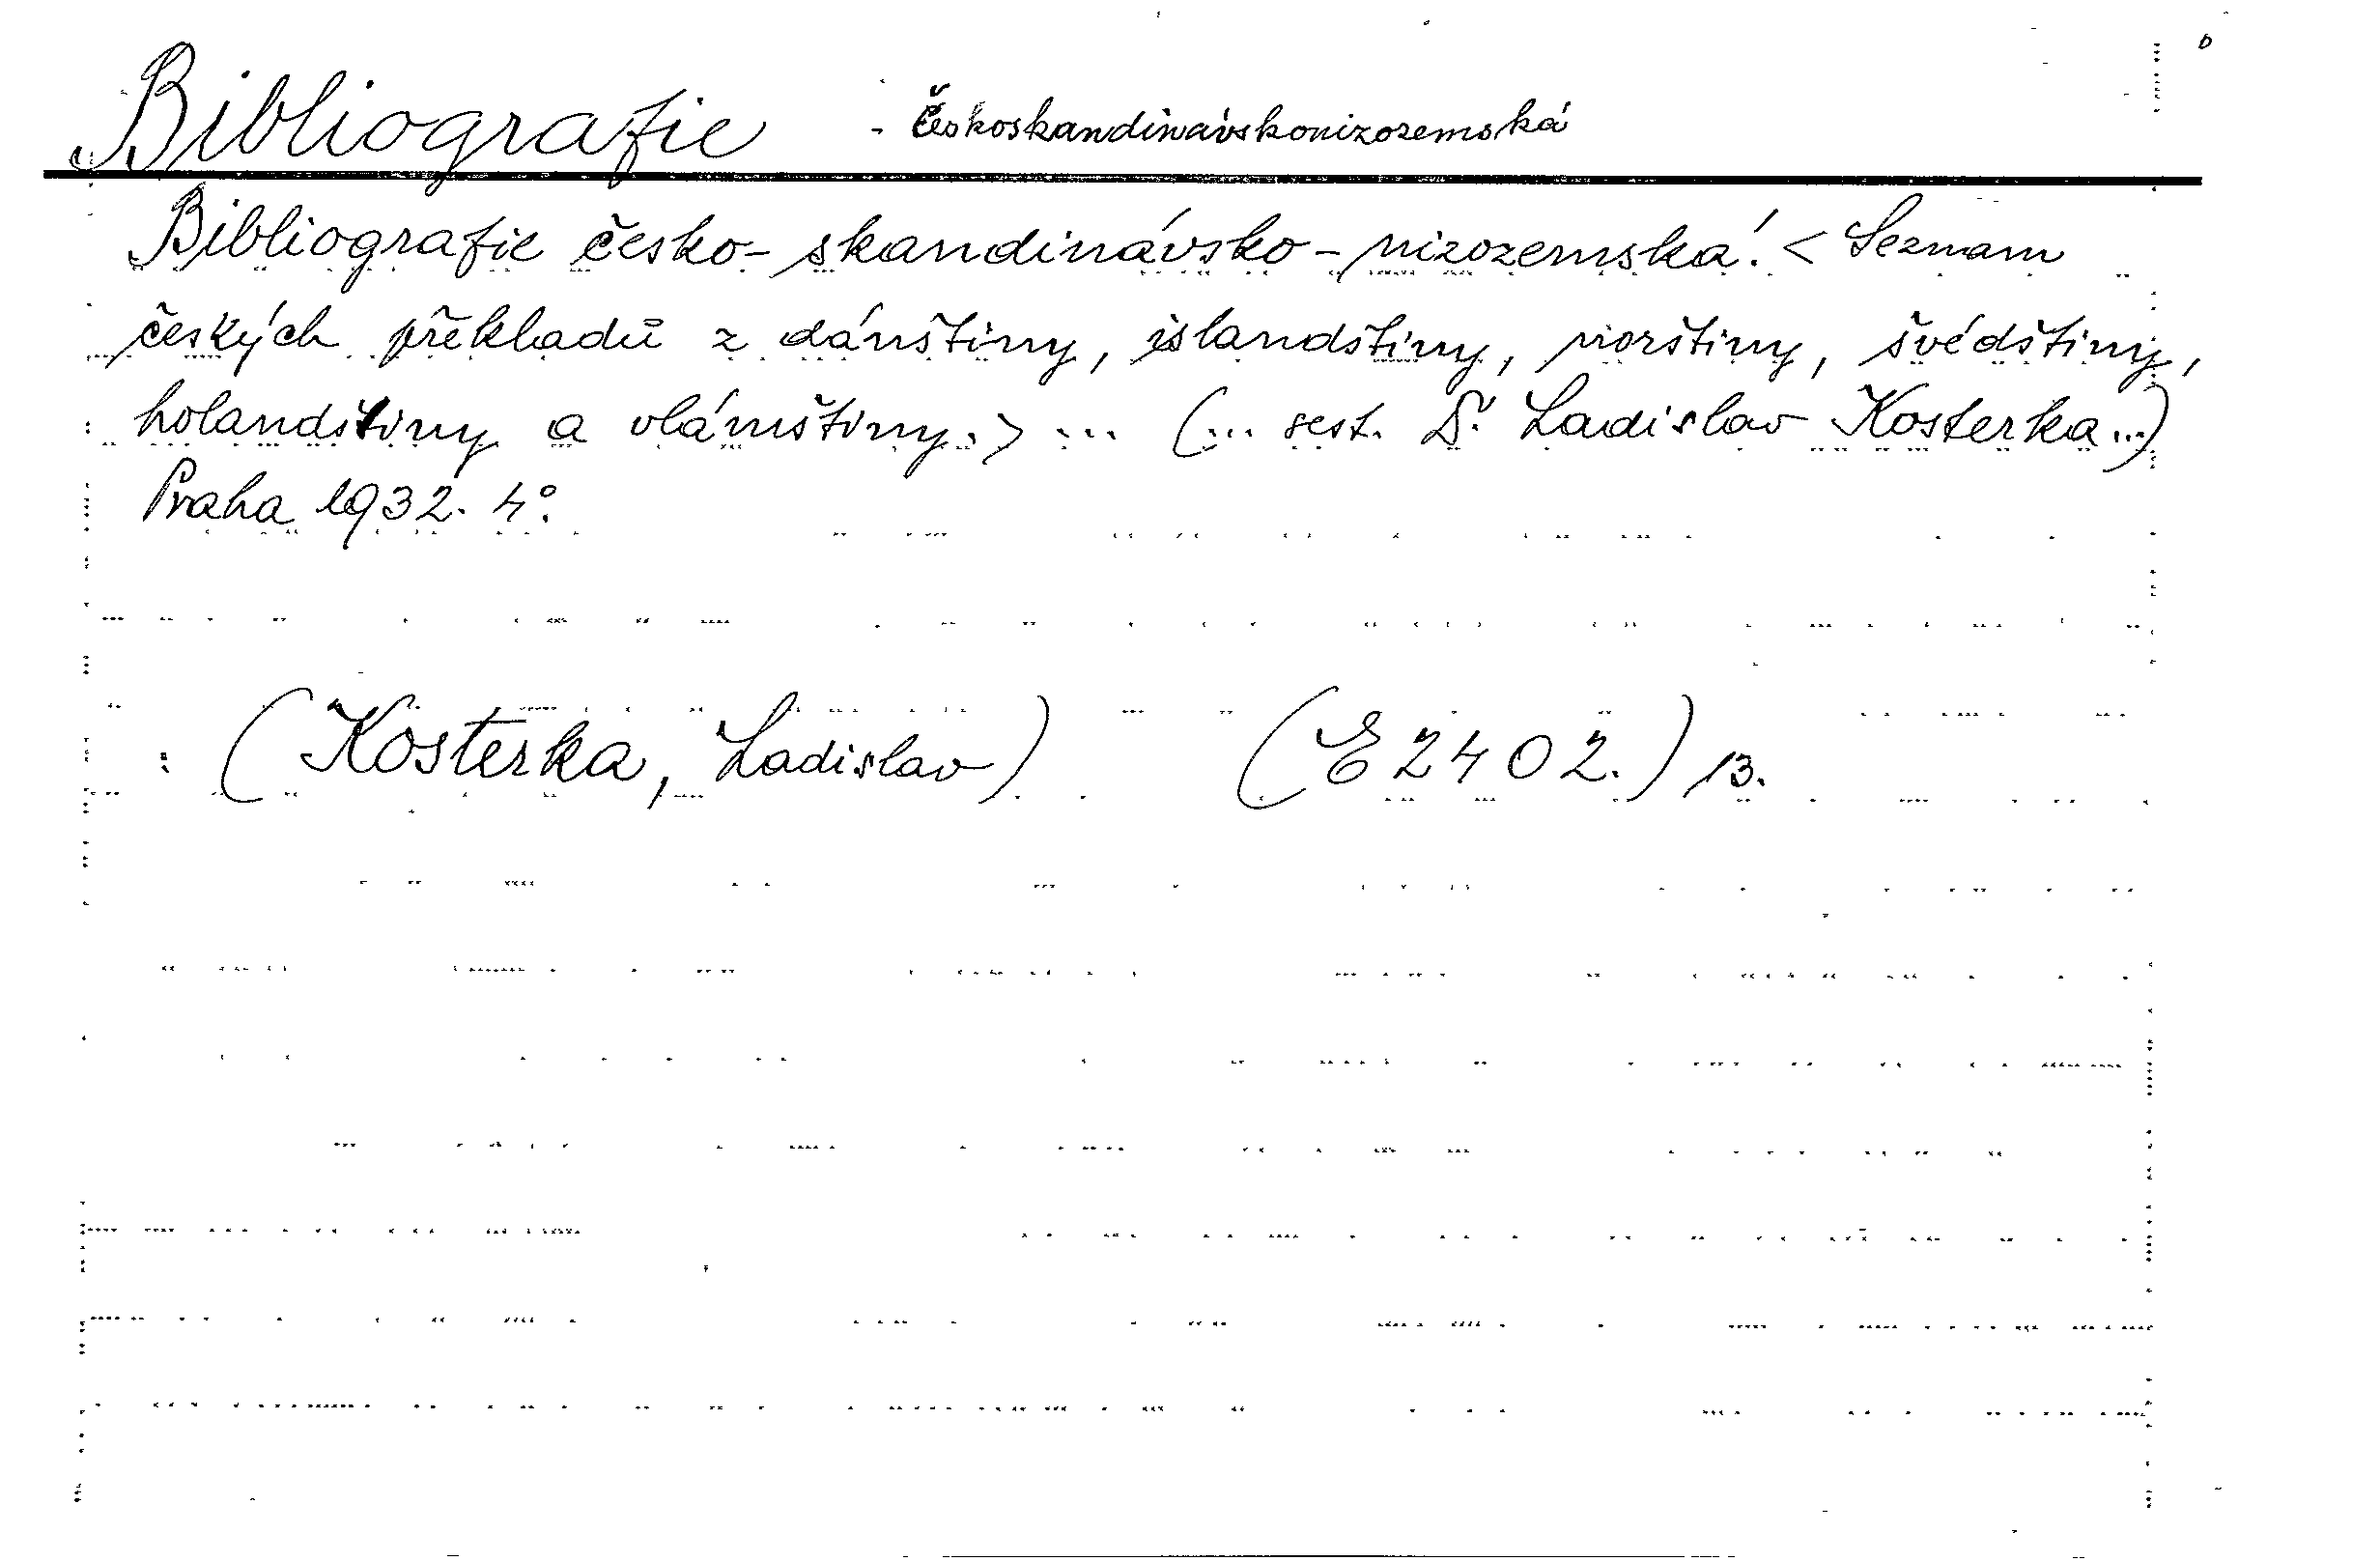 Bibliografie - Československandinávskonizozemská
Bibliografie česko-skandinávsko-nizozemská. < Seznam
českých překladů z dánštiny, islandštiny, norštiny, švédštiny,
holandštiny a vlámštiny. > ... (... sest. Dr. Ladislav Kosterka ...)
Praha 1932. 4°.
: (Kosterka, Ladislav) (E 2402.) 13.